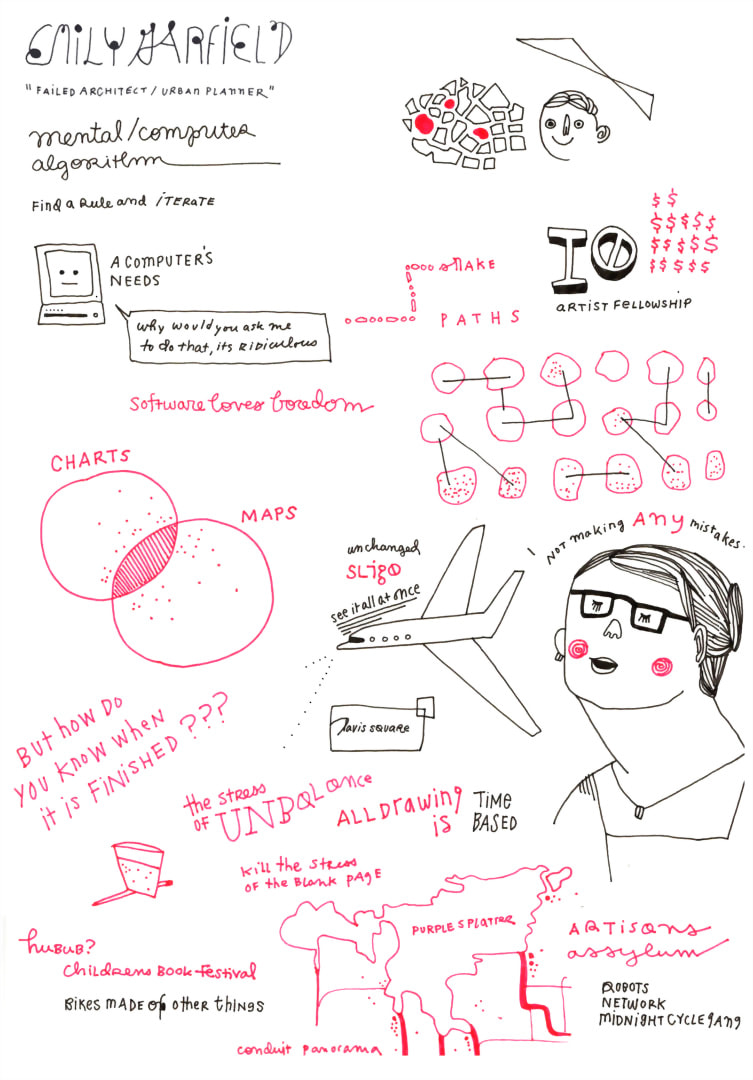 EMILY GARFIELD
"FAILED ARCHITECT / URBAN PLANNER"
mental/computer
algorithm
Find a Rule and iTERATE
A COMPUTER'S
NEEDS
why would you ask me
to do that, its RiDiculous
SNAKE
PATHS
$ $
$ $ $ $ $
$ $ $ $ $
$ $ $ $ $
IO
ARTIST FELLOWSHIP
Software loves boredom
CHARTS
MAPS
unchanged
SLigo
see it all at once
I NOT making ANy mistakes.
Davis square
BUT how DO
YOU KNOW WHEN
it is FiNiSHED ???
the stress
OF UNBALance
ALL Drawing
is
TiME
BASED
Kill the stress
OF the BLank pAGE
PURPLE SPLATTER
ARTiSans
assylum
huBUB?
childrens BOOK festival
BIKES MADE of other things
ROBOTS
NETWORK
MiDNiGHT CYCLE gANg
conduit panorama